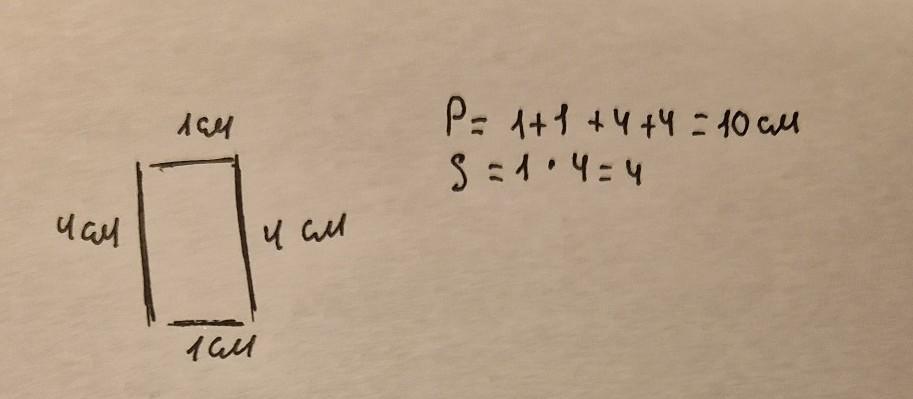 1см
P = 1+1+4+4 = 10 см
S = 1 · 4 = 4
4см
4 см
1см